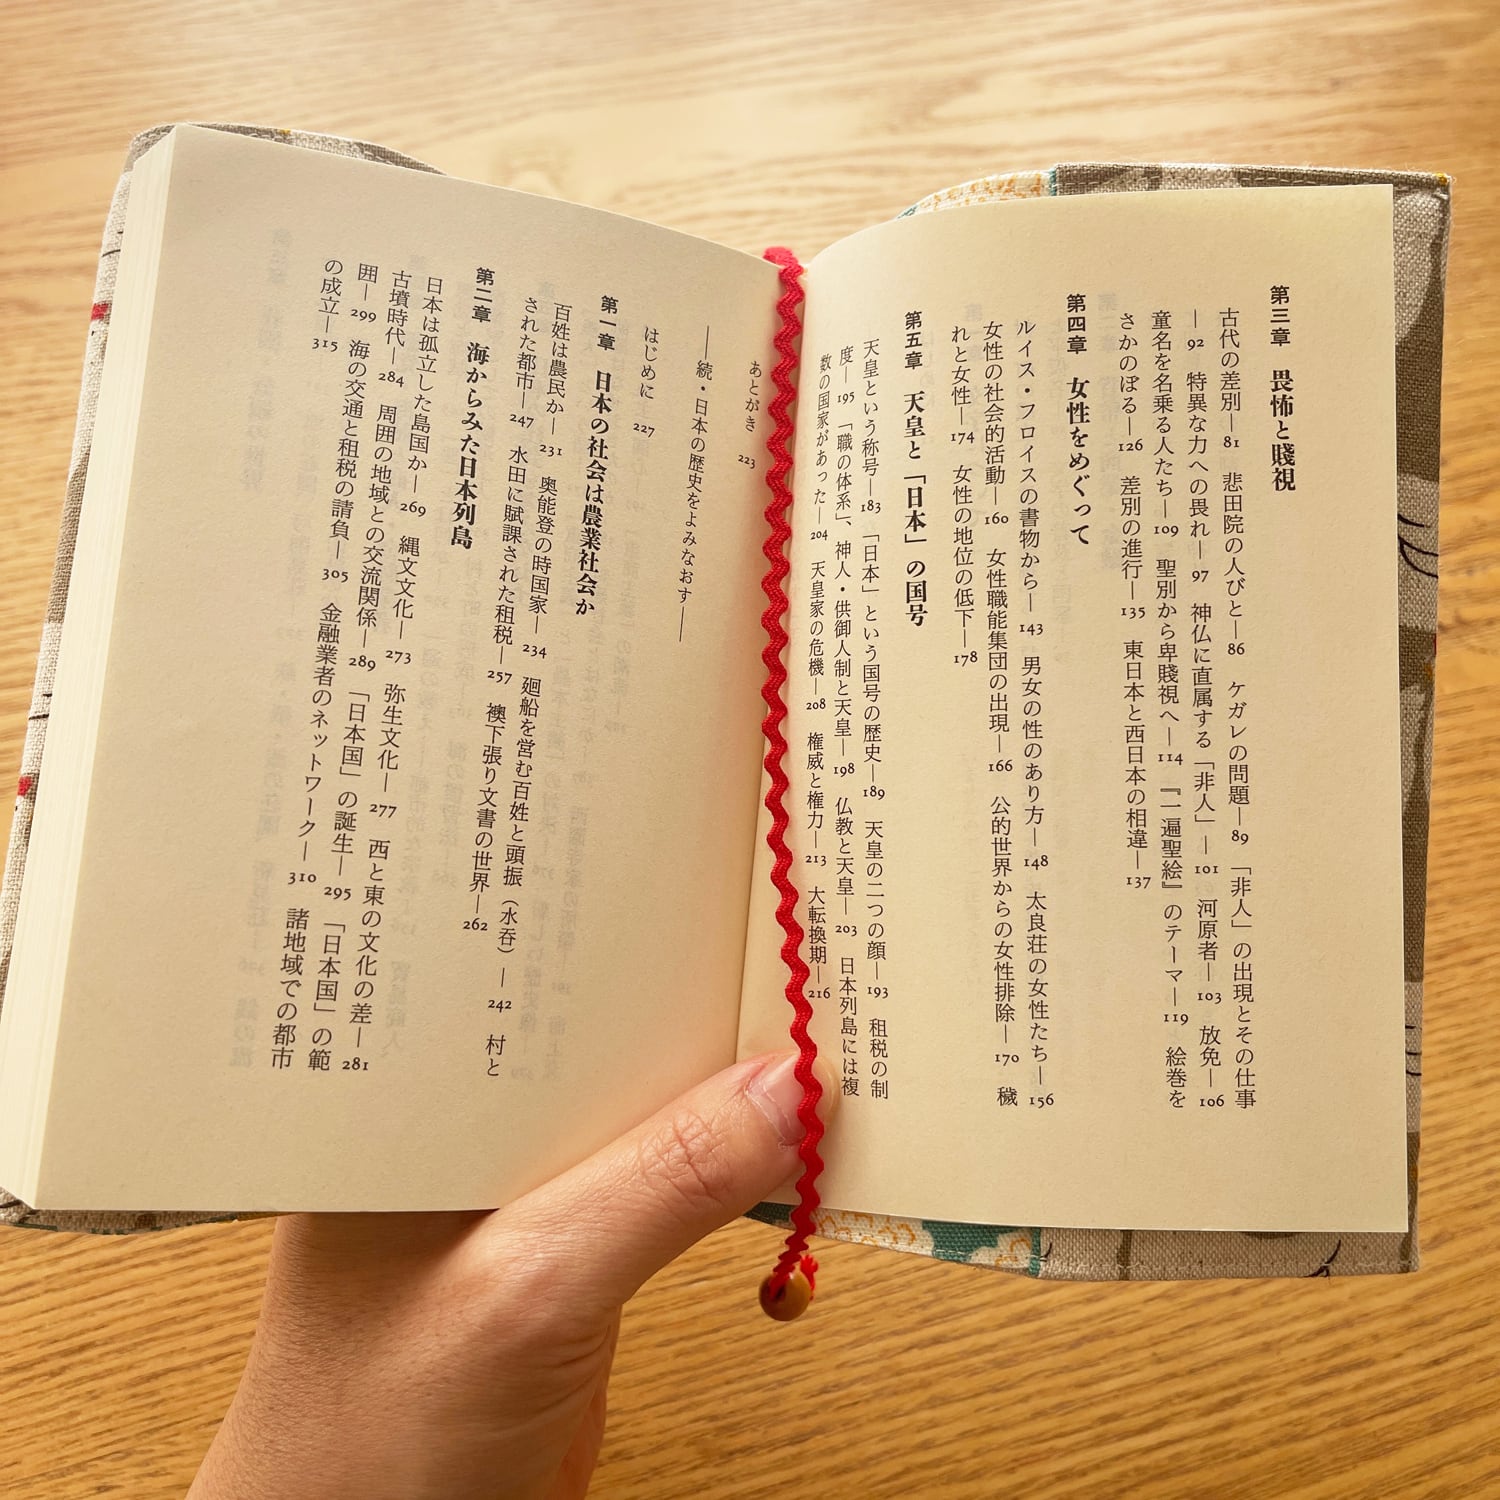 第三章　畏怖と賤視
古代の差別―81　悲田院の人びと―86　ケガレの問題―89　「非人」の出現とその仕事
―92　特異な力への畏れ―97　神仏に直属する「非人」―101　河原者―103　放免―106
童名を名乗る人たち―109　聖別から卑賤視へ―114　『一遍聖絵』のテーマ―119　絵巻を
さかのぼる―126　差別の進行―135　東日本と西日本の相違―137
第四章　女性をめぐって
ルイス・フロイスの書物から―143　男女の性のあり方―148　太良荘の女性たち―156
女性の社会的活動―160　女性職能集団の出現―166　公的世界からの女性排除―170　穢
れと女性―174　女性の地位の低下―178
第五章　天皇と「日本」の国号
天皇という称号―183　「日本」という国号の歴史―189　天皇の二つの顔―193　租税の制
度―195　「職の体系」、神人・供御人制と天皇―198　仏教と天皇―203　日本列島には複
数の国家があった―204　天皇家の危機―208　権威と権力―213　大転換期―216
あとがき　223
――続・日本の歴史をよみなおす――
はじめに　227
第一章　日本の社会は農業社会か
百姓は農民か―231　奥能登の時国家―234　廻船を営む百姓と頭振（水呑）―242　村と
された都市―247　水田に賦課された租税―257　襖下張り文書の世界―262
第二章　海からみた日本列島
日本は孤立した島国か―269　縄文文化―273　弥生文化―277　西と東の文化の差―281
古墳時代―284　周囲の地域との交流関係―289　「日本国」の誕生―295　「日本国」の範
囲―299　海の交通と租税の請負―305　金融業者のネットワーク―310　諸地域での都市
の成立―315